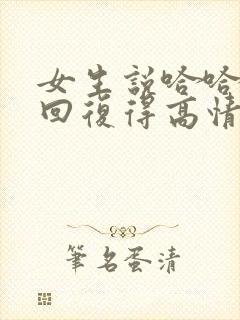 女生說哈哈
回復得高情
筆名蛋清